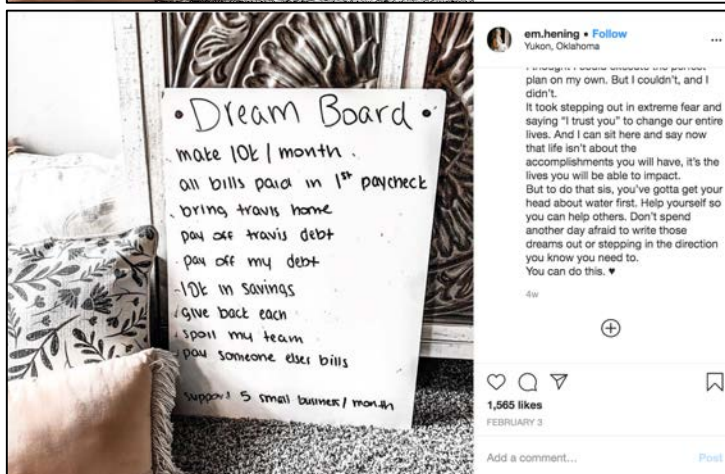 • Dream Board •
make 10k / month .
all bills paid in 1st paycheck
. bring travis home
pay off travis debt
. pay off my debt
-10k in savings
. give back each
. spoil my team
. pay someone elses bills
support 5 small business / month
em.hening • Follow
Yukon, Oklahoma
...
plan on my own. But I couldn't, and I
didn't.
It took stepping out in extreme fear and
saying "I trust you" to change our entire
lives. And I can sit here and say now
that life isn't about the
accomplishments you will have, it's the
lives you will be able to impact.
But to do that sis, you've gotta get your
head about water first. Help yourself so
you can help others. Don't spend
another day afraid to write those
dreams out or stepping in the direction
you know you need to.
You can do this. ♥
4w
1,565 likes
FEBRUARY 3
Add a comment...
Post